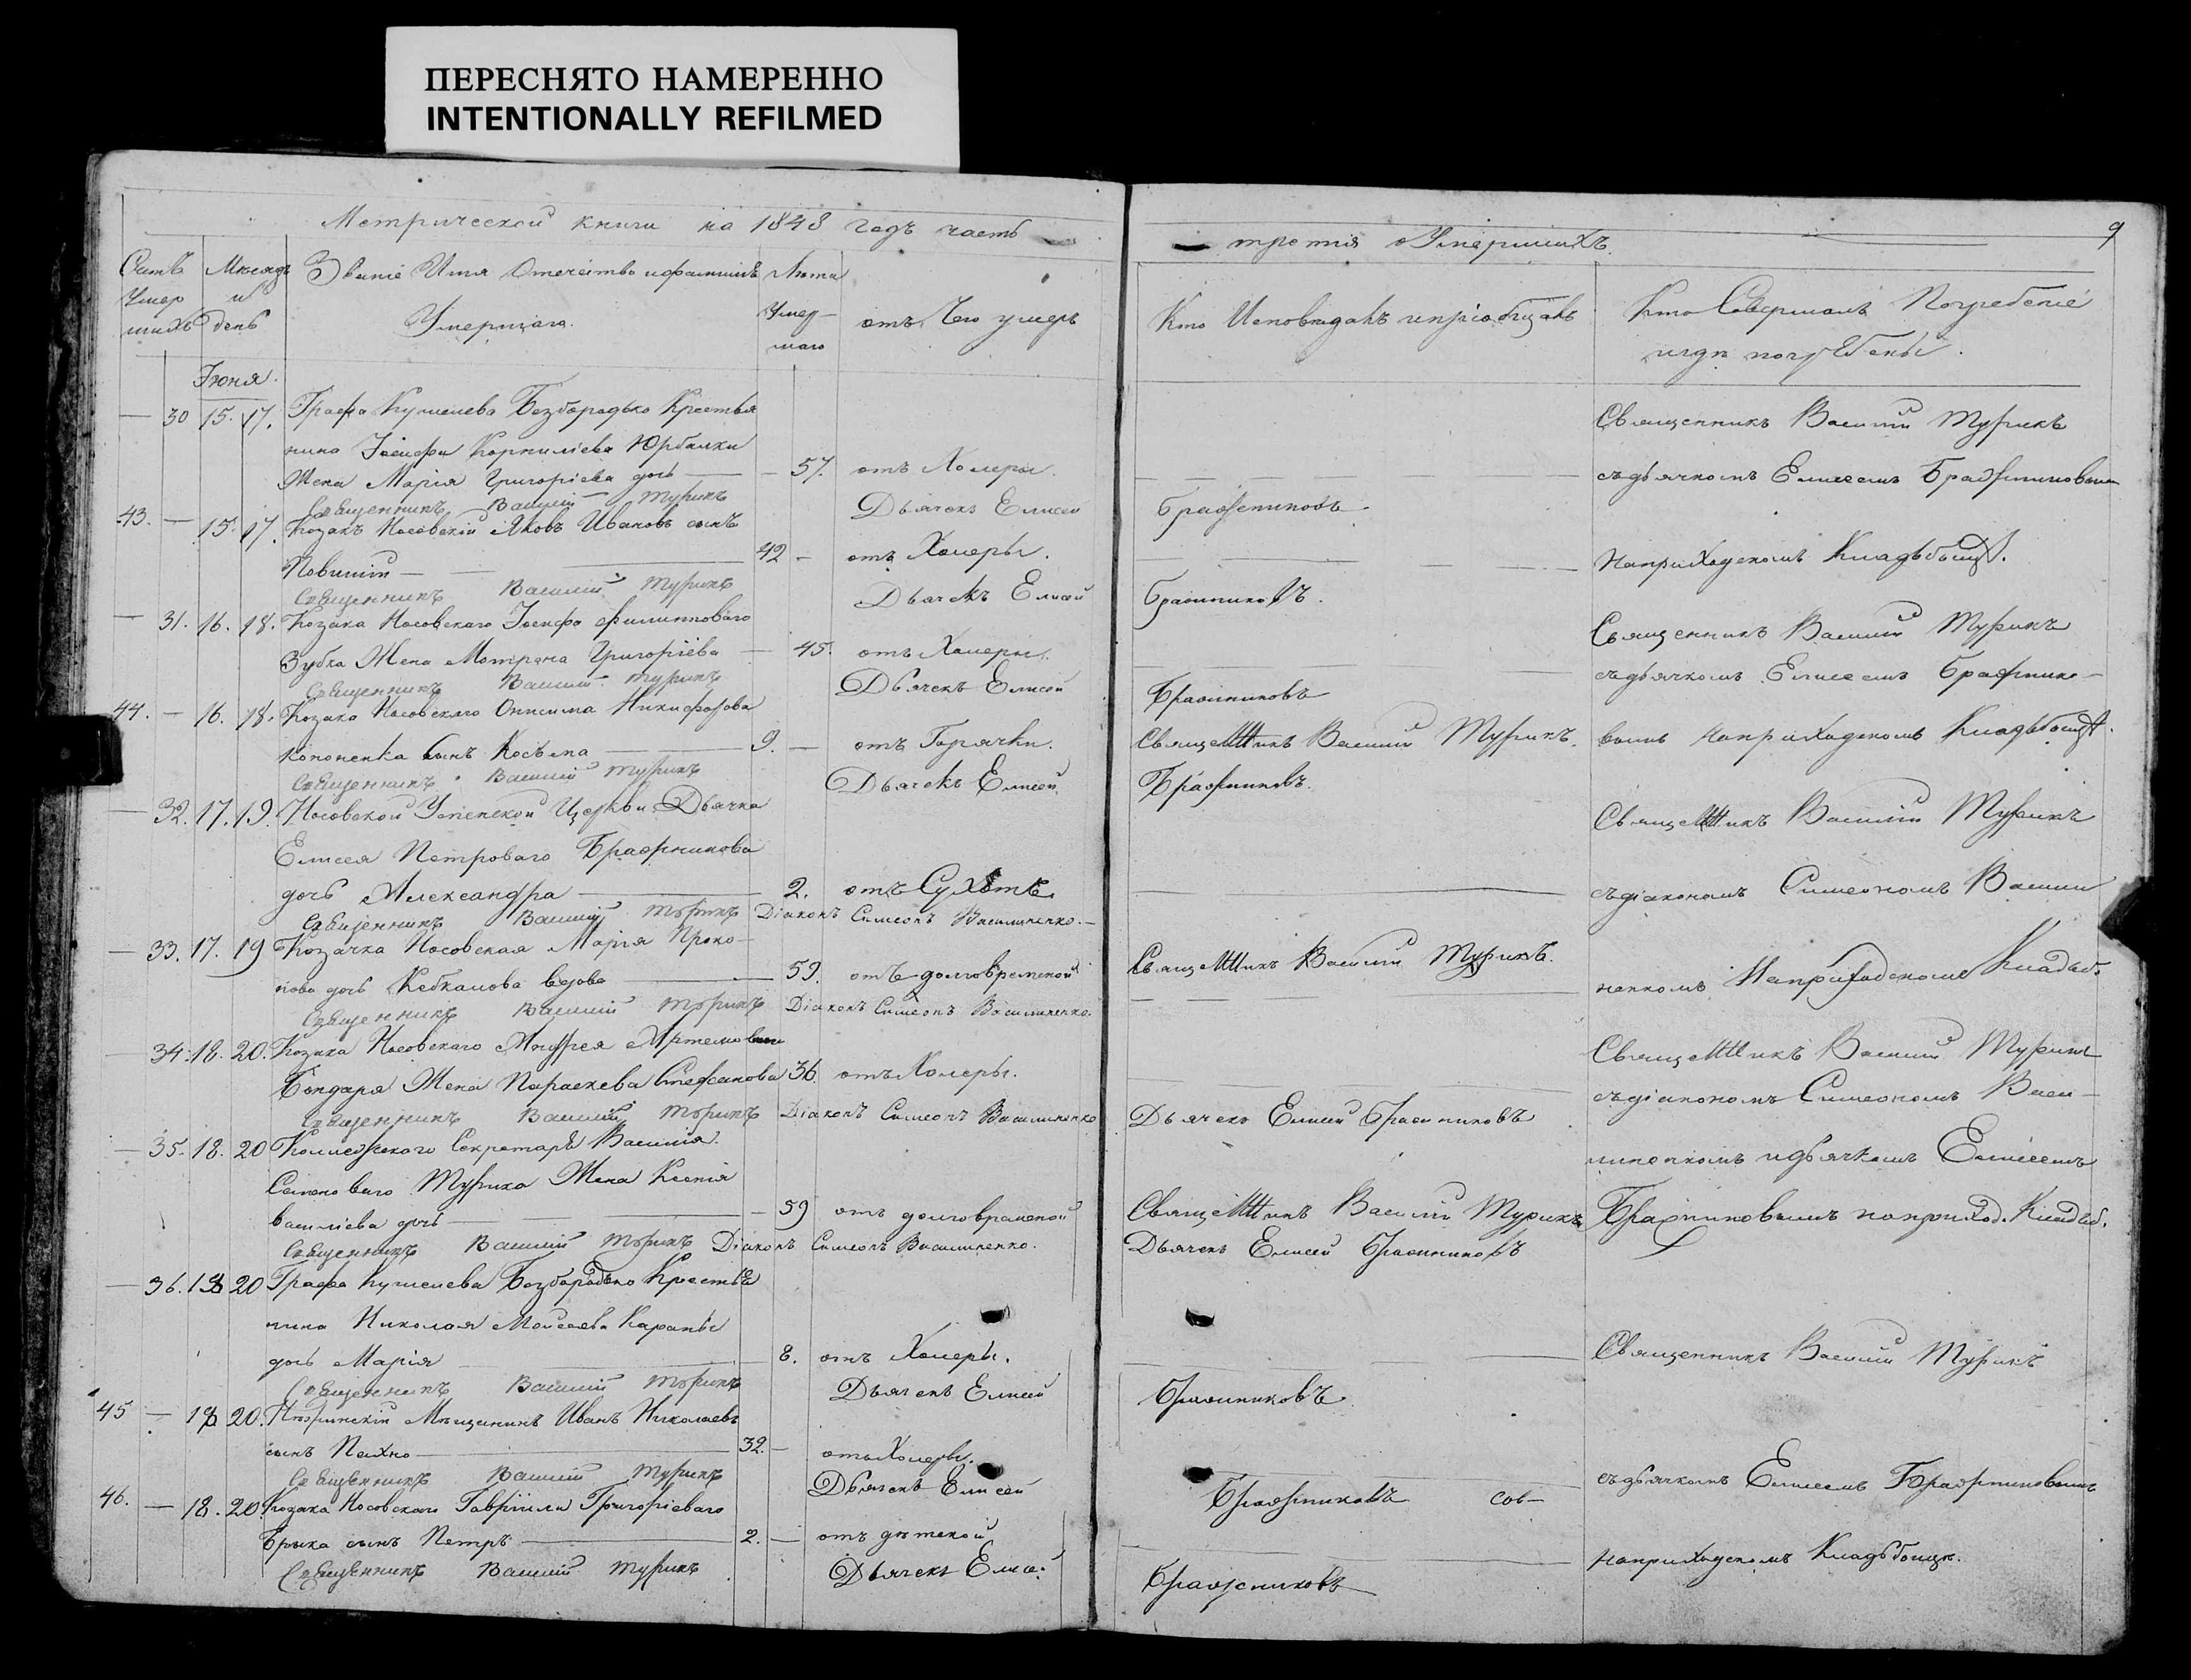 ПЕРЕСНЯТО НАМЕРЕННО
INTENTIONALLY REFILMED
Метрической книги на 1848 годъ часть
Счетъ Умершихъ
Мѣсяцъ и день
Званіе Имя Отечество и фамиліѣ
Умершаго.
Лѣта Умершаго
отъ Чего умеръ
Іюня.
30 15. 17. Графа Кушелева Безбородько Крестья
нина Іосифа Корниліева Юрбалки
Жена Марія Григоріева дочь — 57. отъ Холеры.
Священникъ Василій Турикъ Дьячекъ Елисей
43. — 15. 17. Козакъ Носовскій Яковъ Ивановъ сынъ
42 — отъ Холеры.
Священникъ Василій Турикъ Дьячекъ Елисей
— 31. 16. 18. Козака Носовскаго Іосифа Филипповаго
Зубка Жена Мотрона Григоріева — 45. отъ Холеры.
Священникъ Василій Турикъ Дьячекъ Елисей
44. — 16. 18. Козака Носовскаго Онисима Никифорова
Кононенка сынъ Косьма — 9. — отъ Горячки.
Священникъ Василій Турикъ Дьячекъ Елисей
— 32. 17. 19. Носовской Успенской Церкви Дьячка
Елисея Петроваго Бражникова
дочь Александра — 2. отъ Сухотъ.
Священникъ Василій Турикъ Діаконъ Симеонъ Василиненко. —
— 33. 17. 19 Козачка Носовская Марія Проко-
пова дочь вдова — 59. отъ долговременой
Священникъ Василій Турикъ Діаконъ Симеонъ Василиненко.
34. 18. 20. Козака Носовскаго Андрея Артемоваго
Бондаря Жена Параскева Стефанова 36. отъ Холеры.
Священникъ Василій Турикъ Діаконъ Симеонъ Василиненко
— 35. 18. 20 Коллежскаго Секретаря Василія
Семеноваго Турика Жена Ксенія
Василіева дочь — 59 отъ долговременой
Священникъ Василій Турикъ Діаконъ Симеонъ Василиненко.
— 36. 18 20 Графа Кушелева Безбородько Крестья
нина Николая Моисеева
дочь Марія — 8. отъ Холеры.
Священникъ Василій Турикъ Дьячекъ Елисей
45 — 18 20. Нѣжинскій Мѣщанинъ Иванъ Николаевъ
сынъ Пахно — 32. — отъ Холеры.
Священникъ Василій Турикъ Дьячекъ Елисей
46. — 18. 20. Козака Носовскаго Гавріила Григоріеваго
сынъ Петръ — 2. — отъ дѣтской
Священникъ Василій Турикъ Дьячекъ Елисей
третія о Умершихъ.
9
Кто Исповѣдалъ и пріобщалъ
Кто Совершалъ Погребеніе
и гдѣ погребены.
Священникъ Василій Турикъ
съ дьячкомъ Елисеемъ Бражниковымъ
Бражниковъ.
на приходскомъ Кладьбищѣ.
Бражниковъ.
Священникъ Василій Турикъ
съ дьячкомъ Елисеемъ Бражнико-
Бражниковъ
Священникъ Василій Турикъ. вымъ на приходскомъ Кладьбищѣ.
Бражниковъ.
Священникъ Василій Турикъ
съ діакономъ Симеономъ Васили
Священникъ Василій Турикъ.
ненкомъ На приходскомъ Кладьб.
Священникъ Василій Турикъ
съ діакономъ Симеономъ Васи-
Дьячекъ Елисей Бражниковъ
линенкомъ и дьячкомъ Елисеемъ
Священникъ Василій Турикъ Бражниковымъ на приход. Кладьб.
Дьячекъ Елисей Бражниковъ
Священникъ Василій Турикъ
Бражниковъ
съ дьячкомъ Елисеемъ Бражниковымъ
Бражниковъ
на приходскомъ Кладьбищѣ.
Бражниковъ